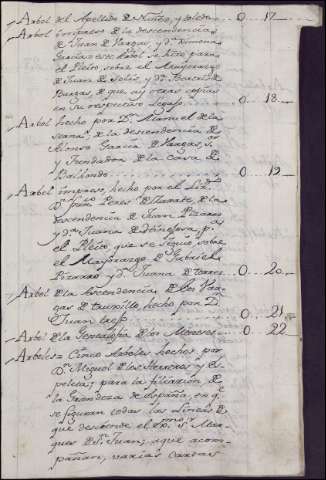 Arbol del Apellido de Nuñez, y Toledo 0. 17.
Arbol impreso de la descendencia
de Juan de Vargas, y Dª Ximena
este Arbol se hizo para
el Pleito sobre el Mayorazgo
de Juan de Solis, y Dª Beatriz
Burgas, de que ay otras copias
en su respectivo Legajo 0. 18.
Arbol hecho por Dn. Manuel de la
de la descendencia de
Alonso Garcia de Vargas, Sor.
y Fundador de la Casa de
0. 19.
Arbol impreso, hecho por el Lizdo.
Dn. Franco. Perez de la
descendencia de Juan Pizarro
y Dª Juana de Hinojosa, pª
el Pleito que se siguio sobre
el Mayorazgo de Gabriel
Pizarro y Dª Juana de Torres 0. 20.
Arbol de la Ascendencia de los Var
gas de Truxillo, hecho por D.
Juan 0. 21.
Arbol de la Genealogia de los Meneses 0. 22
Arboles = Cinco Arboles hechos por
Dn. Miguel de los Herreros y Es
peleta; para la filiacion de
la Grandeza de España, en qe.
se figuran todas las Lineas de
que desciende el Sr. Mar
ques de Sn. Juan; aque acom
pañan, varias Cartas